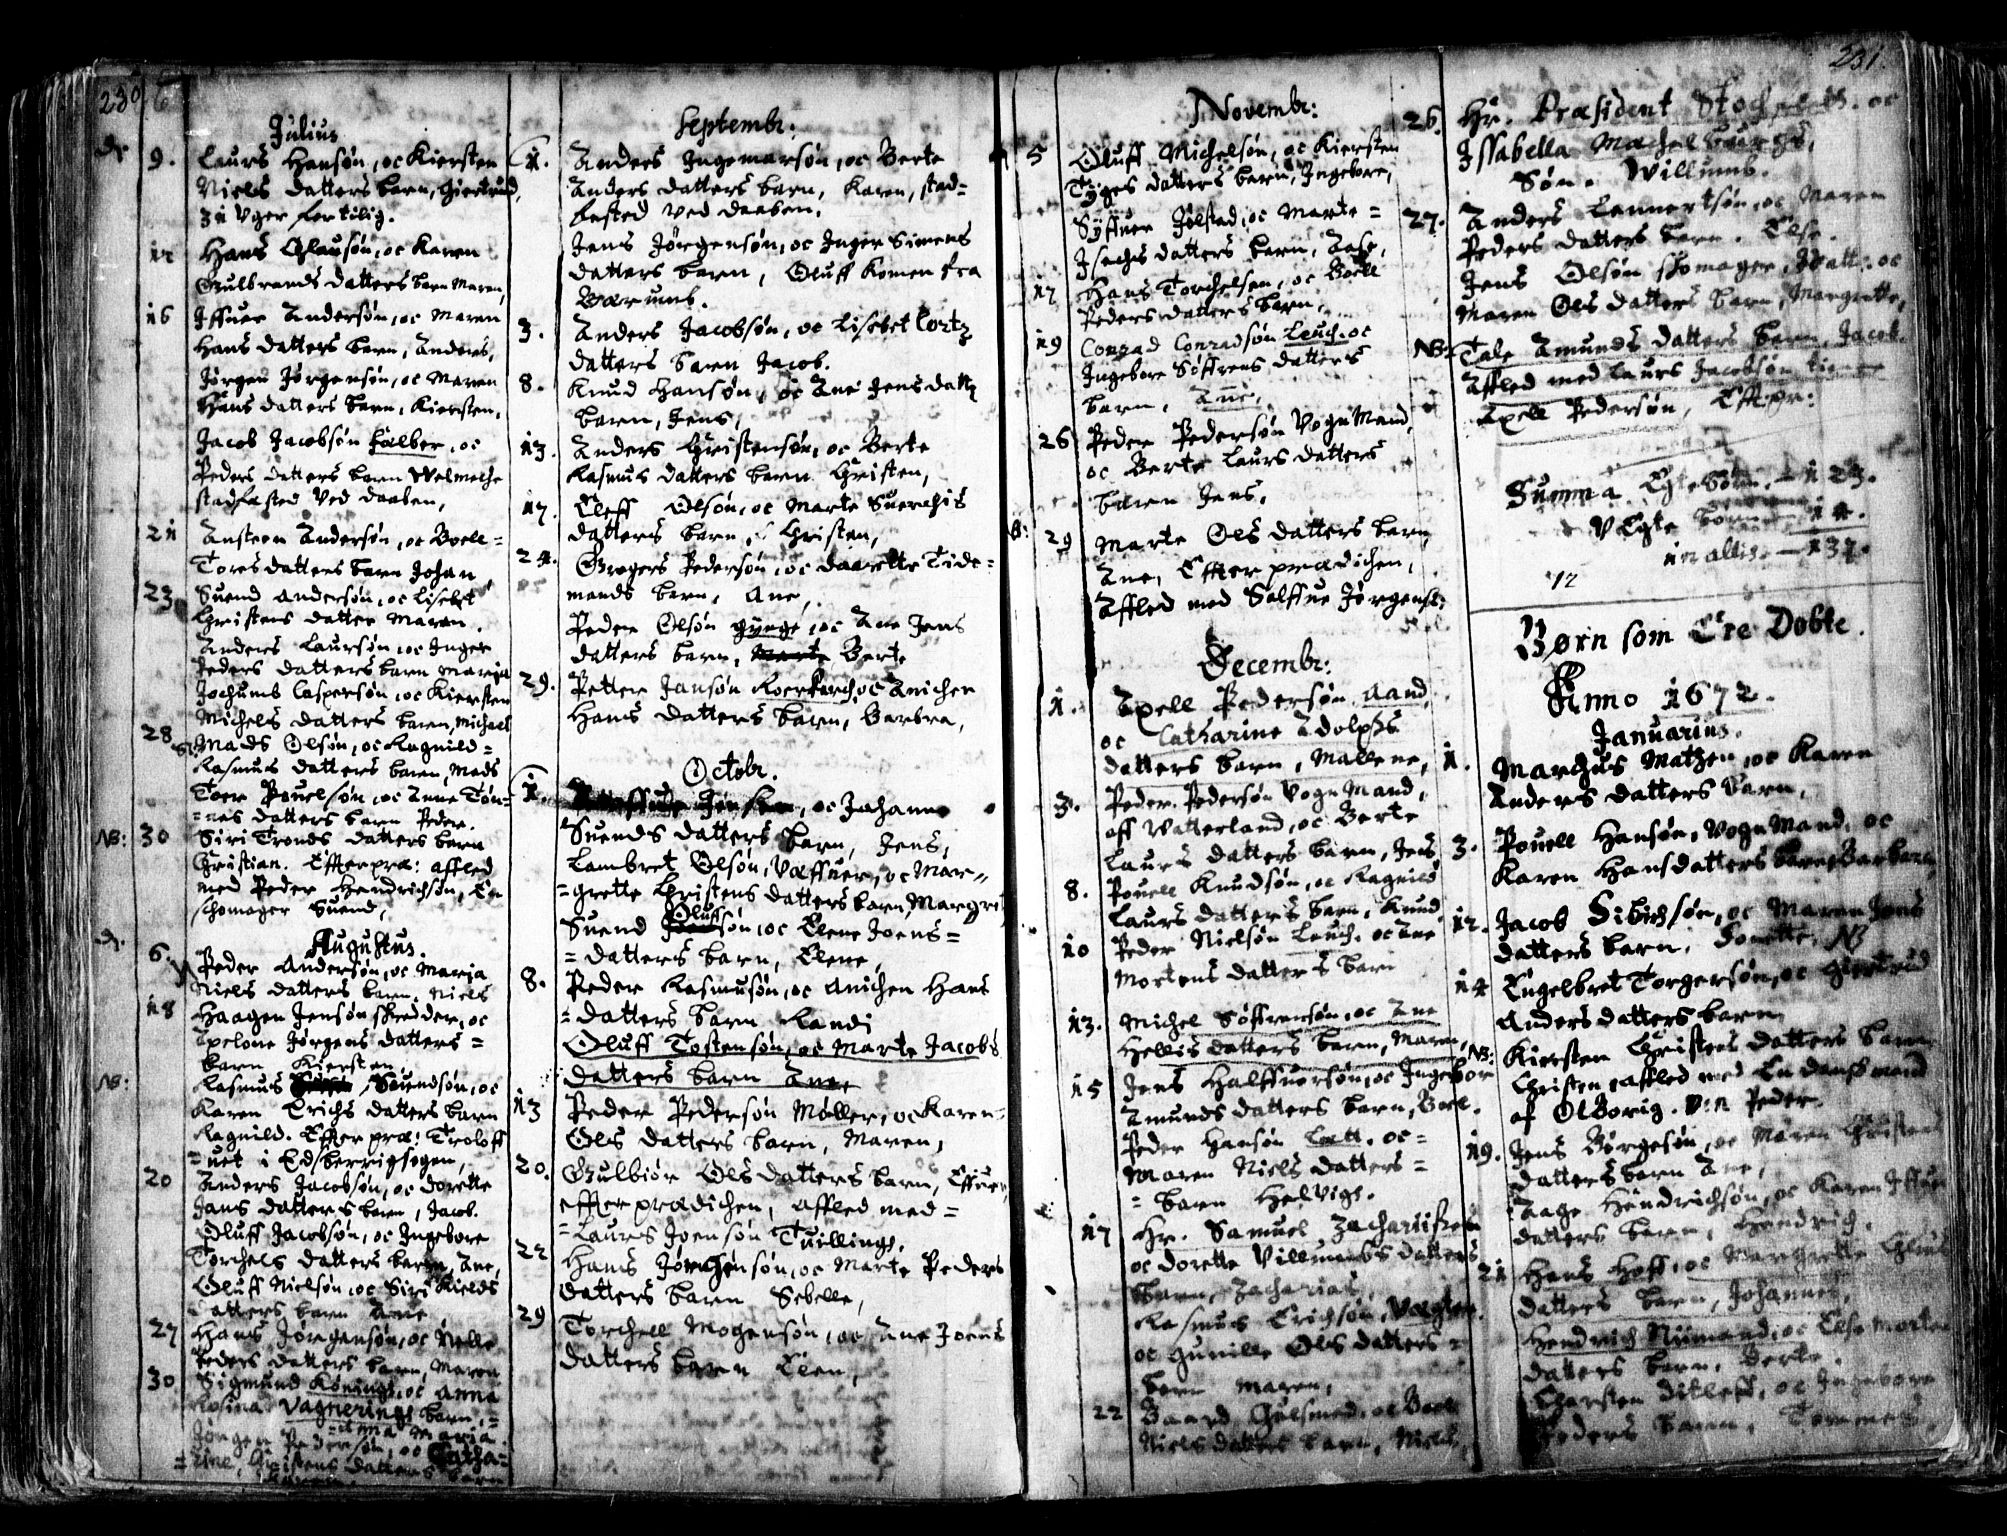 230
Julius
9. Laurs Hansøn, oc Kiersten
Niels datters barn, Giertrud,
3 Uger for tilig.
12 Hans Clausøn, oc Karen
Gulbrands datters barn Maren,
16 Iffuer Andersøn, oc Maren
Hans datters barn, Anders,
Jørgen Jørgensøn, oc Maren
Hans datters barn, Kiersten,
Jacob Jacobsøn Falber, oc
Peders datters barn Welmeche
stadfested Ved daaben,
21 Ansteen Andersøn, oc Boell=
Tores datters barn Johan
23 Suend Andersøn, oc Lisebet
Christens datter Maren.
Anders Laursøn, oc Inger
Peders datters barn Maria
Jochums Caspersøn, oc Kiersten
Michels datters barn, Michael
28 Mads Olsøn, oc Ragnild=
Rasmus datters barn, Mads
Toer Pouelsøn, oc Anne Tøn=
=nes datters barn Peder.
NB: 30 Siri Tronds datters barn
Christian. Effterpræ: afled
med Peder Hendrichsøn, En
schomager Suend,
Augustus.
6. Peder Andersøn, oc Maria
Niels datters barn, Niels
18 Haagen Jensøn skredder, oc
Apelone Jørgens datters=
barn Kiersten
NB: Rasmus Suendsøn, oc
Karen Erichs datters barn
Ragnild. Effter præ: Troloff
=uet i Edsberrigsogen,
20 Anders Jacobsøn, oc Dorette
Jans datters barn, Jacob.
Oluff Jacobsøn, oc Ingebore
Torchels datters barn, Ane,
Oluff Nielsøn, oc Siri Kields
datters barn Ane
27 Hans Jørgensøn, oc Nelle
Peders datters barn, Maren
30 Sigmund Kønings, oc Anna
Rosina Vagnerings barn,=
=Anna Maria.
Jørgen Pedersøn, oc Catha=
=rine, Christens datters barn
Septembr:
1. Anders Ingemarsøn, oc Berte
Anders datters barn, Karen, stad=
fested ved daaben.
Jens Jørgensøn, oc Inger Simens
datters barn, Oluff Komen fra
Bærums.
3. Anders Jacobsøn, oc Lisebet Cortz
datters barn Jacob.
8. Knud Hansøn, oc Ane Jens datt
barn, Jens,
13. Anders Christensøn, oc Berte
Rasmus datters barn Christen,
17. Eleff Olsøn, oc Marte Suerchis
datters barn, Christen,
24. Gregers Pedersøn, oc daarette Tide=
mands barn, Ane,
Peder Olsøn gynge, oc Ane Jens
datters barn, Marte Berte
29. Petter Jansøn Roerkarch, oc Anichen
Hans datters barn, Barbra,
Octobr.
1. oc Johanne
Suends datters barn, Jens,
Lambret Olsøn, Væffuer, oc Mar=
=grette Christens datters barn, Margret
Suend Oluffsøn, oc Elene Joens=
=datters barn, Elene,
8. Peder Rasmusøn, oc Anichen Hans
=datters barn Randi
Oluff Tostensøn, oc Marte Jacobs
datters barn Ane
13 Peder Pedersøn Møller, oc Karen=
Ols datters barn, Maren,
20. Gulbiør Ols datters barn, Effuer,
effter prædichen, affled med=
=Laurs Joensøn Tuillings.
22 Hans Jørgensøn, oc Marte Peders
datters barn Sebelle,
29 Torchell Mogensøn, oc Ane Joens
datters barn Elen,
231.
Novembr:
5 Oluff Michelsøn, oc Kiersten
Tyges datters barn, Ingebore,
Syffuer Jølstad, oc Marte=
Isachs datters barn, Aase,
17 Hans Torchelsen, oc Boell
Peders datters barn,
19 Conrad Conradsøn Leuch. oc
Ingebore Søffrens datters
barn, Ane,
26 Peder Pedersøn Vogn Mand,
oc Berte Laurs datters
barn Jens,
29 Marte Ols datters barn
Ane, Effter prædichen,
Affled med Salffue Jørgens:
Decembr:
1. Axell Pedersøn Aand,
oc Catharine Adolphs
datters barn, Mallene,
3. Peder Pedersøn Vogn Mand,
aff Watterland, oc Berte
Laurs datters barn, Jens,
8. Pouell Knudsøn, oc Ragnild
Laurs datters barn, Knud
10 Peder Nielsøn Leuch. oc Ane
Mortens datters barn
13. Michel Søffrensøn, oc Ane
Hellis datters barn, Maren,
15 Jens Halffuorsøn, oc Ingebor
Amunds datters barn, Boel.
Peder Hansøn Lett. oc=
Maren Niels datters=
=barn Helvige.
17 Hr. Samuel Zachariisen
oc Dorette Villumbs datters
barn, Zacharias,
Rasmus Erichsøn, Vægter
oc Gunille Ols datters=
barn Maren,
22 Baard Gulsmed, oc Boel
Niels datters barn, Niels,
26. Hr. Præsident Stoch oc
Issabella
Søn. Willumb.
27. Anders Lennertsøn, oc Maren
Peders datters barn. Else.
Jens Olsøn schomager, oc
Maren Ols datters barn, Margrette,
NB: Tale Amunds datters barn, Jacob.
Affled med Laurs Jacobsøn
Axell Pedersøn, Eft.pr:
Summa Egte børn. — 123.
VEgte børn — 14.
in allis. — 137.
12
Børn som Ere Døbte.
Anno 1672.
Januarius.
1. Marchus Matzen, oc Karen
Anders datters barn,
3. Pouell Hansøn, Vogn Mand, oc
Karen Hansdatters barn Barbara
12. Jacob Sibichsøn, oc Maren Jens
datters barn, Dorette, NB
14 Engelbret Torgersøn, oc Giertrud
Anders datters barn
NB: Kiersten Christens datters barn
Christen, affled med En dansk mand
af Olborig. V:n Peder.
19. Jens Børgesøn, oc Maren Christens
datters barn Ane,
Aage Hendrichsøn, oc Karen Iffuer
datters barn, Hendrich.
21 Hans Hoff, oc Margrette Claus
datters barn, Johannes,
Hendrich Niimand, oc Else Morten
datters barn, Berte.
Charsten Ditleff, oc Ingebore
Peders barn,